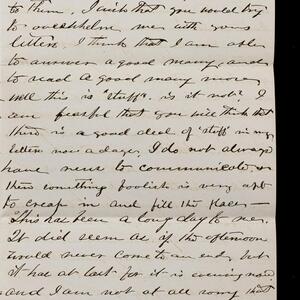 to them. I wish that you would try
to overwhelm me with your
letters. I think that I am able
to answer a good many, and
to read a good many more.
Well this is "stuff". is it not? I
am fearful that you will think that
there is a good deal of "stuff" in my
letters now a days. I do not always
have news to communicate, &
then something foolish is very apt
to creep in and fill the place—
This has been a long day to me.
It did seem as if the afternoon
would never come to an end, but
it has at last. for it is evening now
and I am not at all sorry that